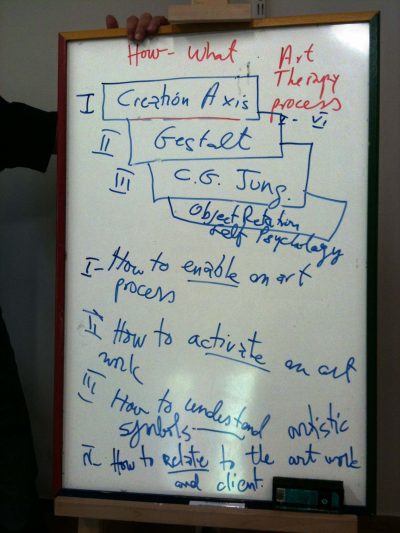 How - What Art
Therapy
process
I Creation Axis
I - VI
II Gestalt
III C.G. Jung.
Object Relation
Self Psychology
I - How to enable an art
process
II How to activate an art
work
III How to understand artistic
symbols
IV How to relate to the art work
and client.